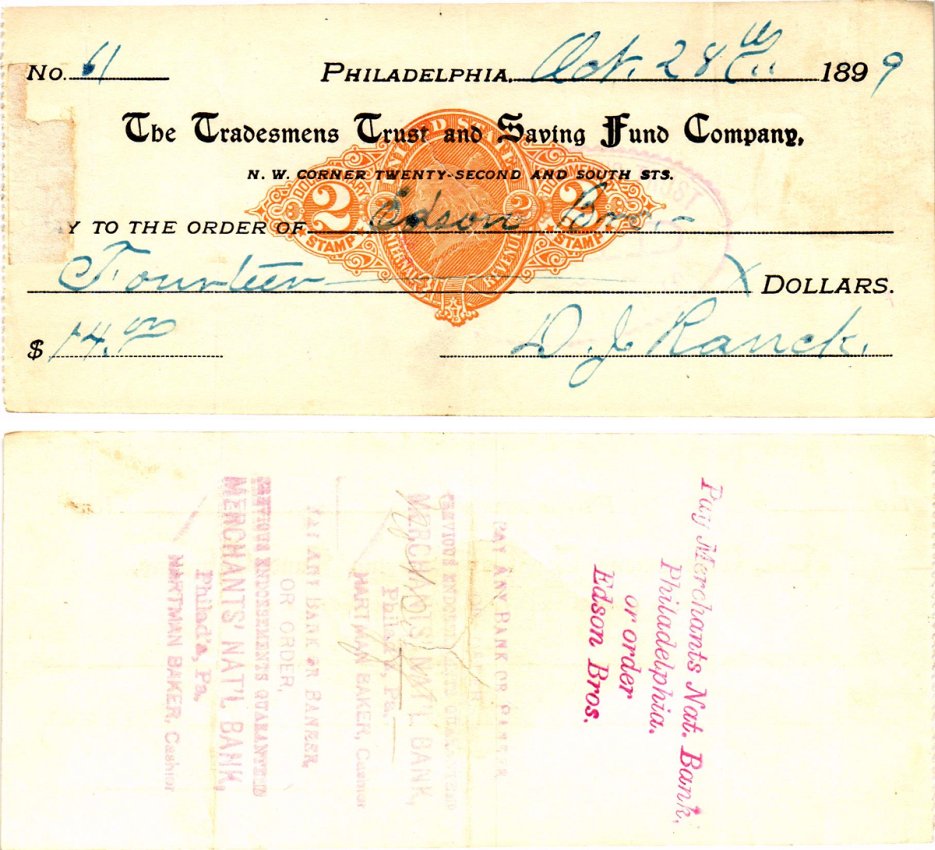 No. 61 Philadelphia, Oct. 28th 1899
The Tradesmens Trust and Saving Fund Company,
N. W. CORNER TWENTY-SECOND AND SOUTH STS.
Y TO THE ORDER OF Edson Bros.
Fourteen DOLLARS.
$ 14.00 D. J. Ranck.
UNITED STATES
2 2 2
STAMP STAMP
INTERNAL REVENUE
Pay Merchants Nat. Bank,
Philadelphia.
or order
Edson Bros.
PAY ANY BANK OR BANKER
PREVIOUS ENDORSEMENTS GUARANTEED
MERCHANTS' NAT'L BANK,
Philad'a, Pa.
HARTMAN BAKER, Cashier
PAY ANY BANK OR BANKER,
OR ORDER,
PREVIOUS ENDORSEMENTS GUARANTEED
MERCHANTS' NAT'L BANK,
Philad'a, Pa.
HARTMAN BAKER, Cashier